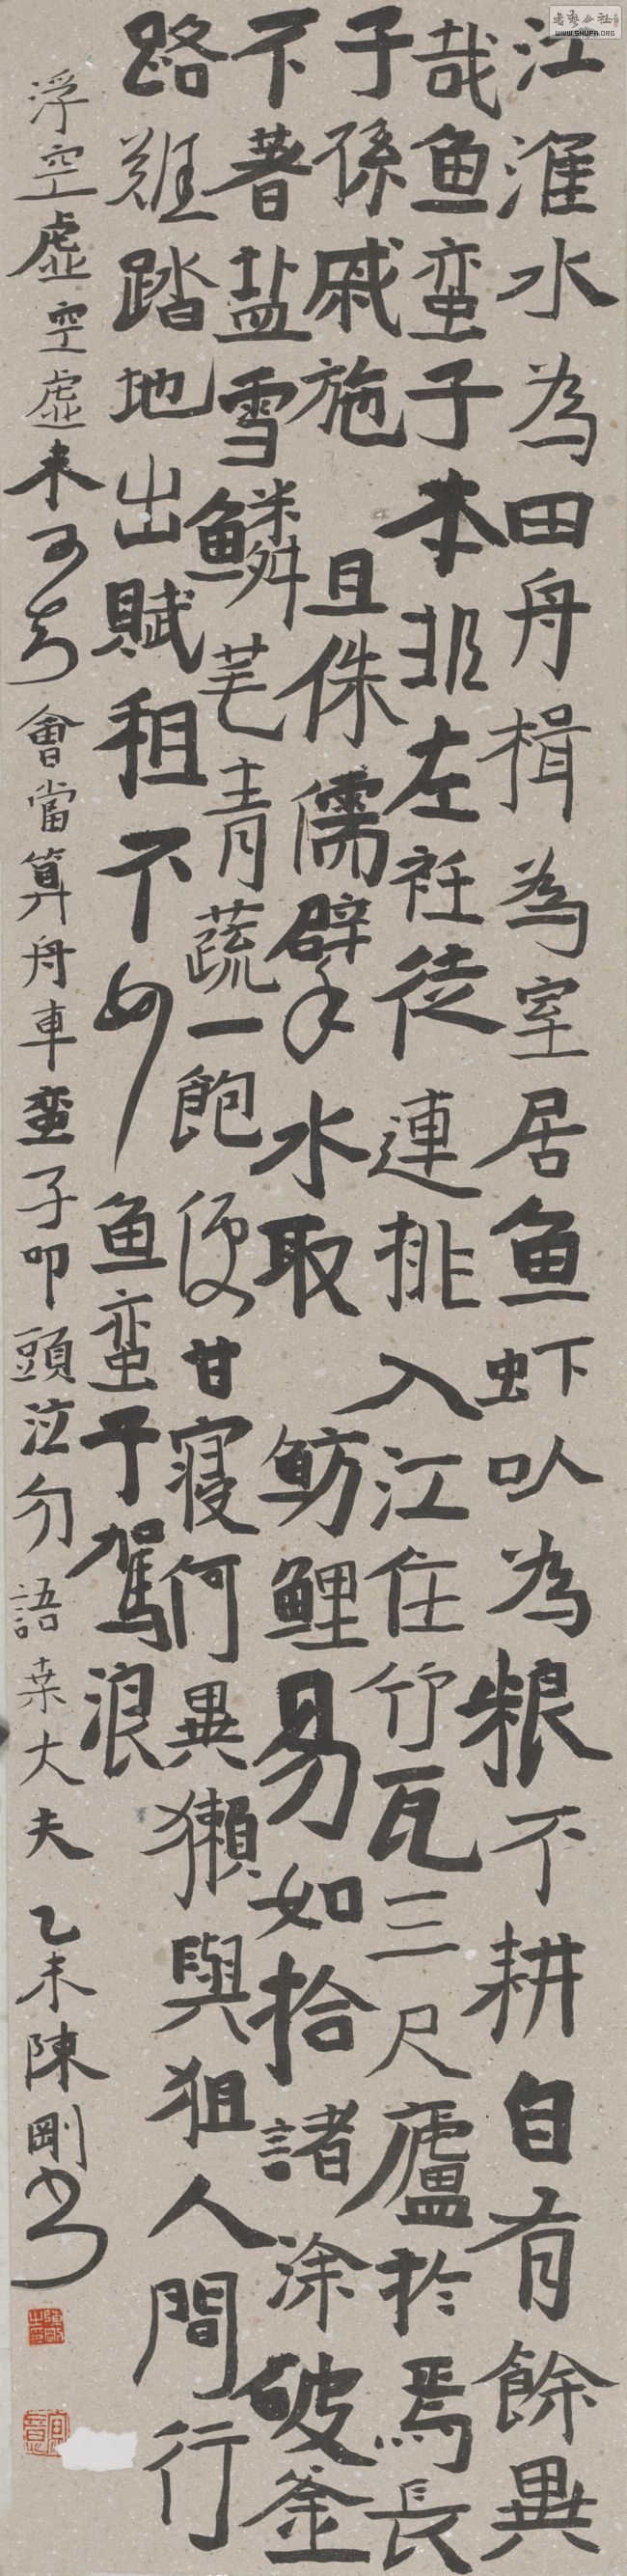 江淮水為田舟楫為室居鱼虾以為粮不耕自有餘異
哉鱼蛮子本非左衽徒連排入江住竹瓦三尺廬於焉長
子孫戚施且侏儒擘水取鲂鲤易如拾諸涂破釜
不著盐雪鳞芼青蔬一飽便甘寢何異獺與狙人間行
路難踏地出賦租不如鱼蛮子駕浪
浮空虛空虛未可知會當算舟車蛮子叩頭泣勿語桒大夫 乙未陳剛书
書藝公社
WWW.SHUFA.ORG